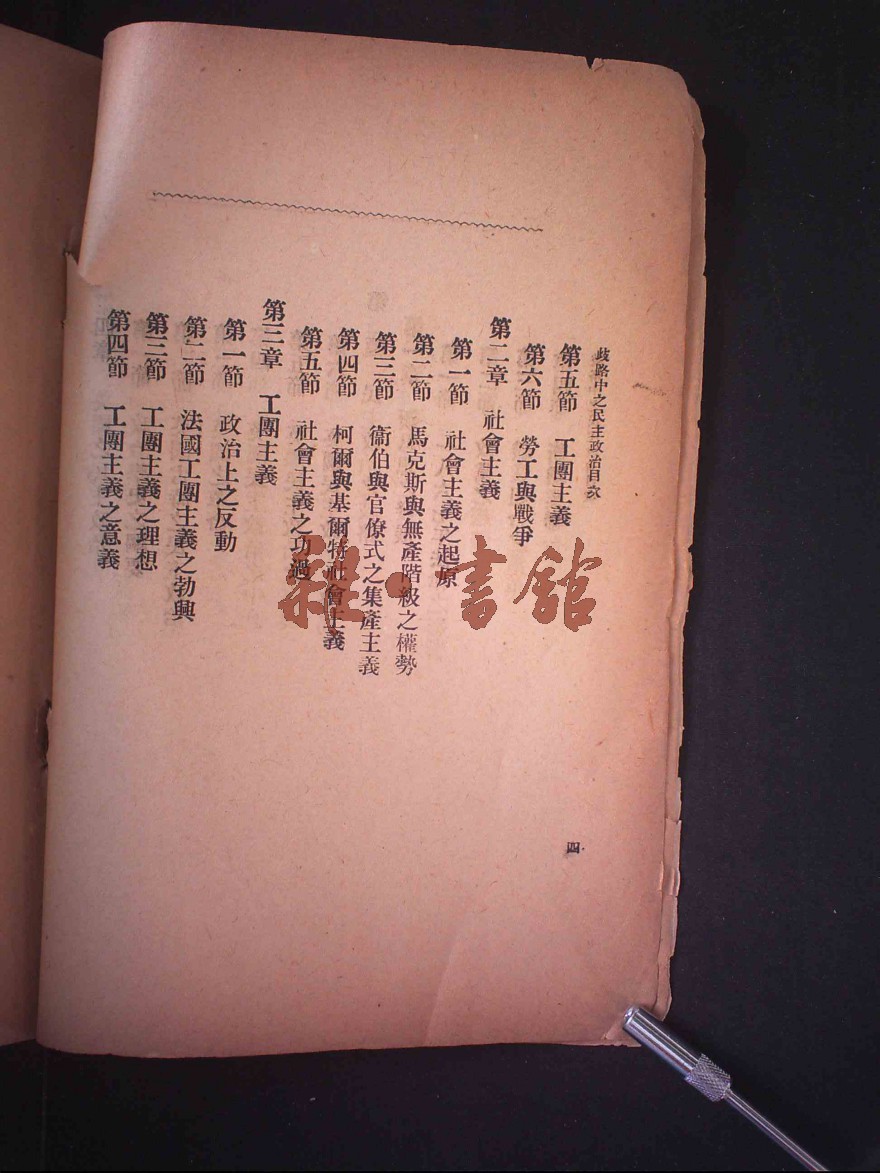 歧路中之民主政治目次
第五節　工團主義
第六節　勞工與戰爭
第二章　社會主義
第一節　社會主義之起原
第二節　馬克斯與無產階級之權勢
第三節　衞伯與官僚式之集產主義
第四節　柯爾與基爾特社會主義
第五節　社會主義之功過
第三章　工團主義
第一節　政治上之反動
第二節　法國工團主義之勃興
第三節　工團主義之理想
第四節　工團主義之意義
四
雜·書館